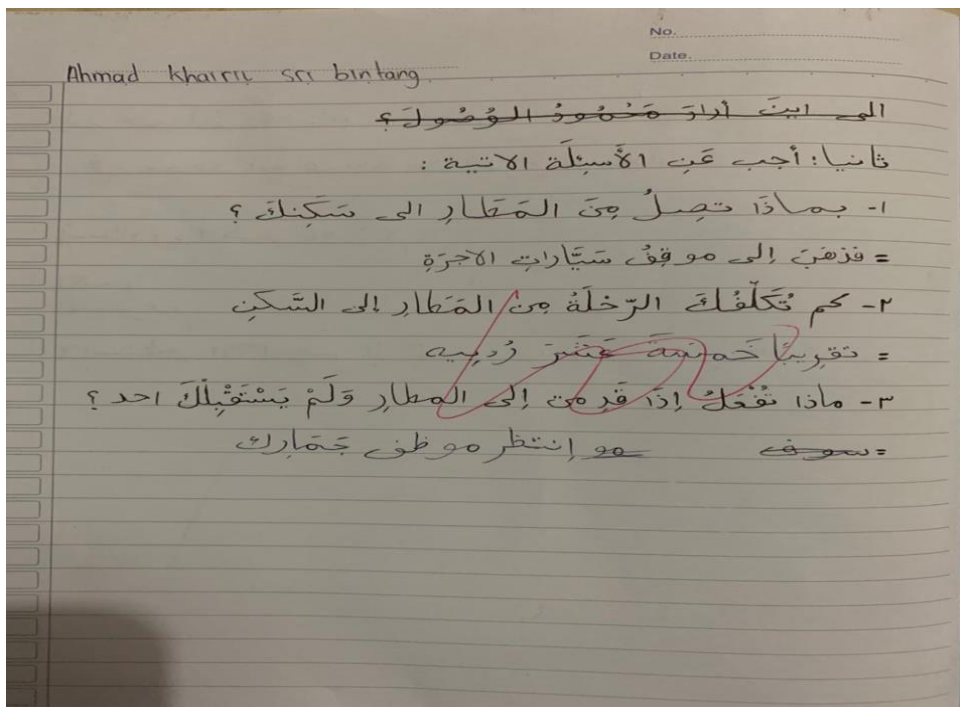 No.
Date.
Ahmad khairil sri bintang
الى اينَ أرادَ مَحْمُودُ الوُصُولَ؟
ثانيا: أجب عَنِ الأَسئِلَة الاتية :
١- بماذَا تصِلُ مِنَ المَطَارِ الى سَكَنِكَ ؟
= فذهَبَ إلى موقِفُ سَيَّارَاتِ الاجرَةِ
٢- كم تُكَلِّفُكَ الرّحلَةُ مِن المَطَارِ إلى السَّكَنِ
= تقرِيبًا خَمسَةَ عَشَرَ رُدبِيه
٣- ماذا تُفْعَلُ إِذَا قَدِمت إلى المطارِ وَلَمْ يَسْتَقْبِلْكَ احد ؟
= سوف مو إنتظر موظف جَمَارِك